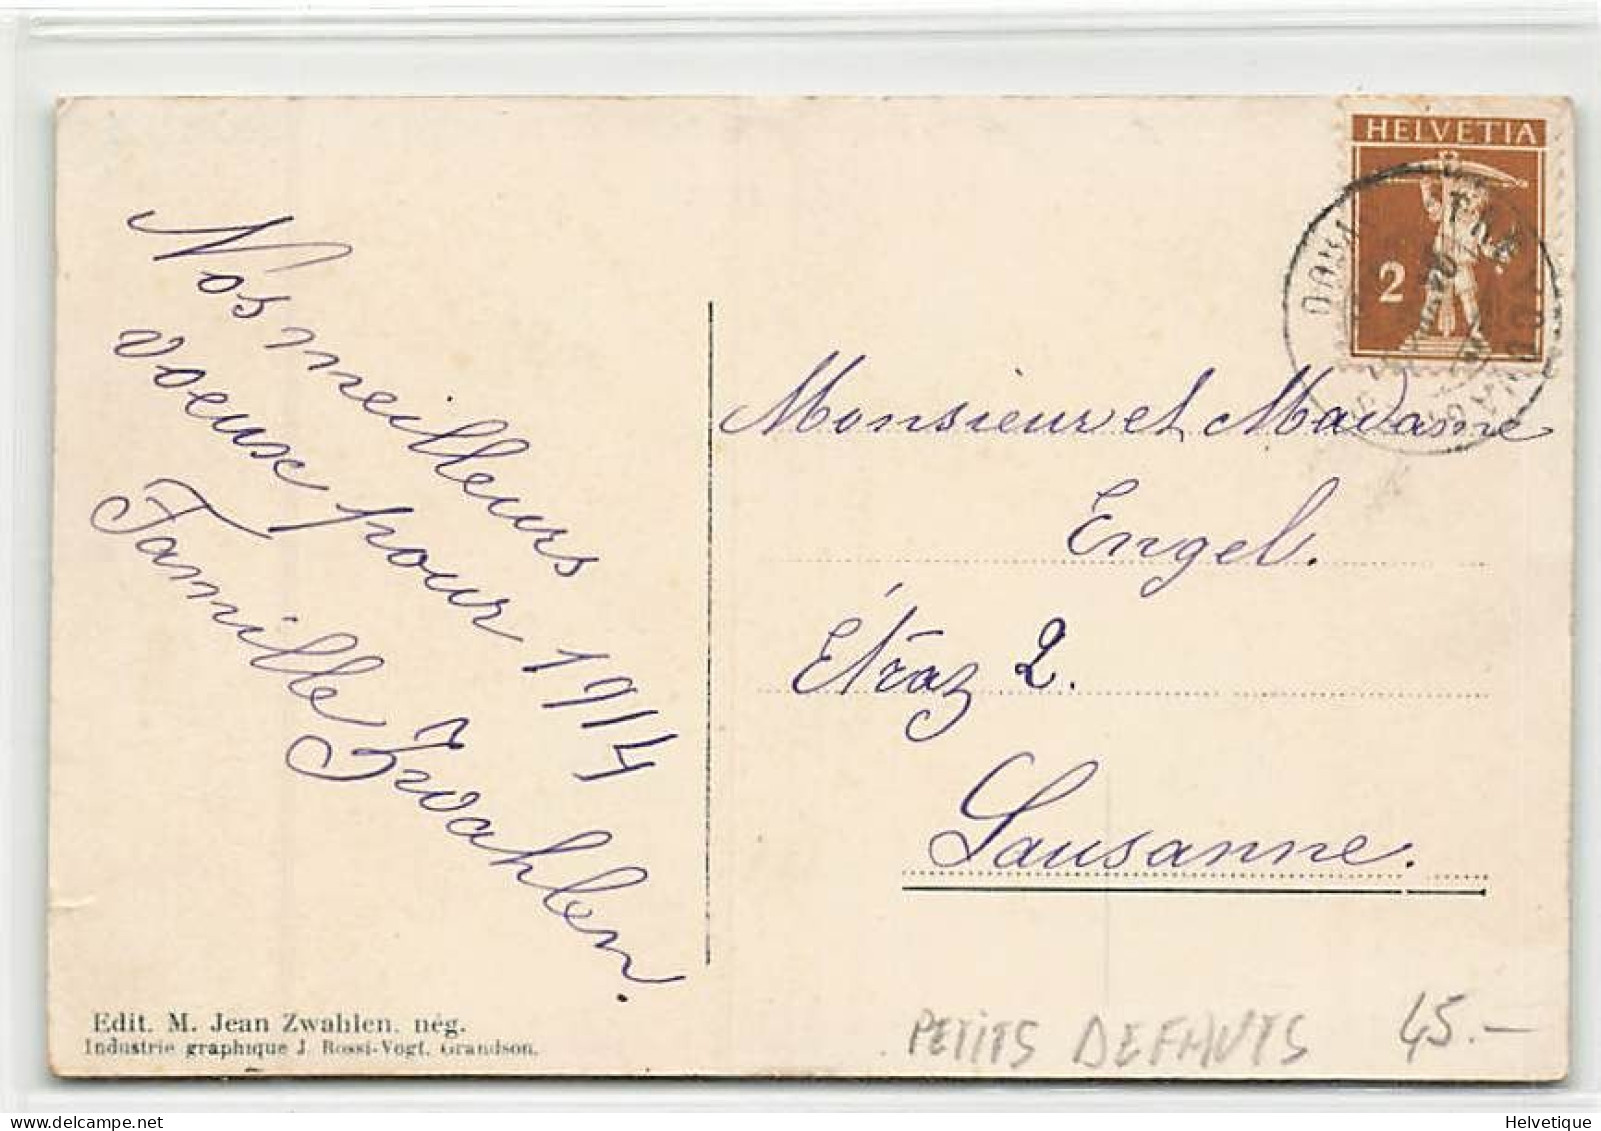 HELVETIA
2
Nos meilleurs
voeux pour 1914
Famille Zwahlen.
Monsieur et Madame
Engel.
Étraz 2.
Lausanne.
Edit. M. Jean Zwahlen. nég.
Industrie graphique J. Rossi-Vogt. Grandson.
PETITS DEFAUTS 45.–
Helvetique